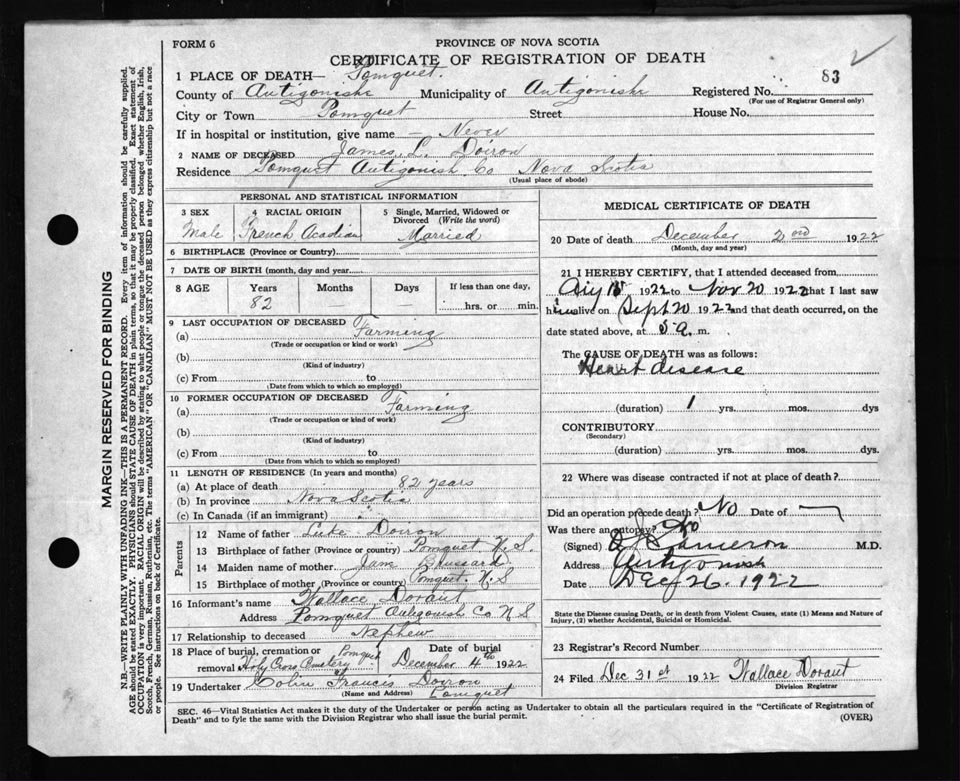 FORM 6
PROVINCE OF NOVA SCOTIA
CERTIFICATE OF REGISTRATION OF DEATH
83 2
1 PLACE OF DEATH— Pomquet.
County of Antigonish Municipality of Antigonish Registered No.
(For use of Registrar General only)
City or Town Pomquet Street House No.
If in hospital or institution, give name — Never
2 NAME OF DECEASED James, L. Doiron
Residence Pomquet Antigonish Co Nova Scotia
(Usual place of abode)
PERSONAL AND STATISTICAL INFORMATION
3 SEX 4 RACIAL ORIGIN 5 Single, Married, Widowed or Divorced (Write the word)
Male French Acadian Married
6 BIRTHPLACE (Province or Country)
7 DATE OF BIRTH (month, day and year)
8 AGE Years Months Days If less than one day,
82 — — hrs. or min.
9 LAST OCCUPATION OF DECEASED
(a) Farming
(Trade or occupation or kind of work)
(b)
(Kind of industry)
(c) From to
(Date from which to which so employed)
10 FORMER OCCUPATION OF DECEASED
(a) Farming
(Trade or occupation or kind of work)
(b)
(Kind of industry)
(c) From to
(Date from which to which so employed)
11 LENGTH OF RESIDENCE (In years and months)
(a) At place of death 82 years
(b) In province Nova Scotia
(c) In Canada (if an immigrant)
Parents
12 Name of father Doiron
13 Birthplace of father (Province or country) Pomquet N. S.
14 Maiden name of mother
15 Birthplace of mother (Province or country) Pomquet. N. S
16 Informant's name Wallace Dorant
Address Pomquet Antigonish Co N S
17 Relationship to deceased Nephew
18 Place of burial, cremation or removal Holy Cross Cemetery Pomquet Date of burial December 4th 1922
19 Undertaker Colin Francis Doiron
(Name and Address) Pomquet
MEDICAL CERTIFICATE OF DEATH
20 Date of death December 2nd 1922
(Month, day and year)
21 I HEREBY CERTIFY, that I attended deceased from
1922 to Nov 20 1922 that I last saw
him alive on Sept 20 1922 and that death occurred, on the
date stated above, at 5 a. m.
The CAUSE OF DEATH was as follows:
Heart disease
(duration) 1 yrs. mos. dys
CONTRIBUTORY
(Secondary)
(duration) yrs. mos. dys.
22 Where was disease contracted if not at place of death?
Did an operation precede death? No Date of —
Was there an autopsy? No
(Signed) Cameron M.D.
Address Antigonish
Date Dec 26. 1922
State the Disease causing Death, or in death from Violent Causes, state (1) Means and Nature of
Injury, (2) whether Accidental, Suicidal or Homicidal.
23 Registrar's Record Number
24 Filed Dec 31st 1922 Wallace Dorant
Division Registrar
SEC. 46—Vital Statistics Act makes it the duty of the Undertaker or person acting as Undertaker to obtain all the particulars required in the "Certificate of Registration of
Death" and to fyle the same with the Division Registrar who shall issue the burial permit. (OVER)
MARGIN RESERVED FOR BINDING
N.B.—WRITE PLAINLY WITH UNFADING INK—THIS IS A PERMANENT RECORD. Every item of information should be carefully supplied.
AGE should be stated EXACTLY. PHYSICIANS should STATE CAUSE OF DEATH in plain terms, so that it may be properly classified. Exact statement of
OCCUPATION is very important. RACIAL ORIGIN will be described by stating to what people or tongue the deceased person belonged whether English, Irish,
Scotch, French, German, Russian, Ruthenian, etc. The terms "AMERICAN" OR "CANADIAN" MUST NOT BE USED as they express citizenship but not a race
or people. See instructions on back of Certificate.